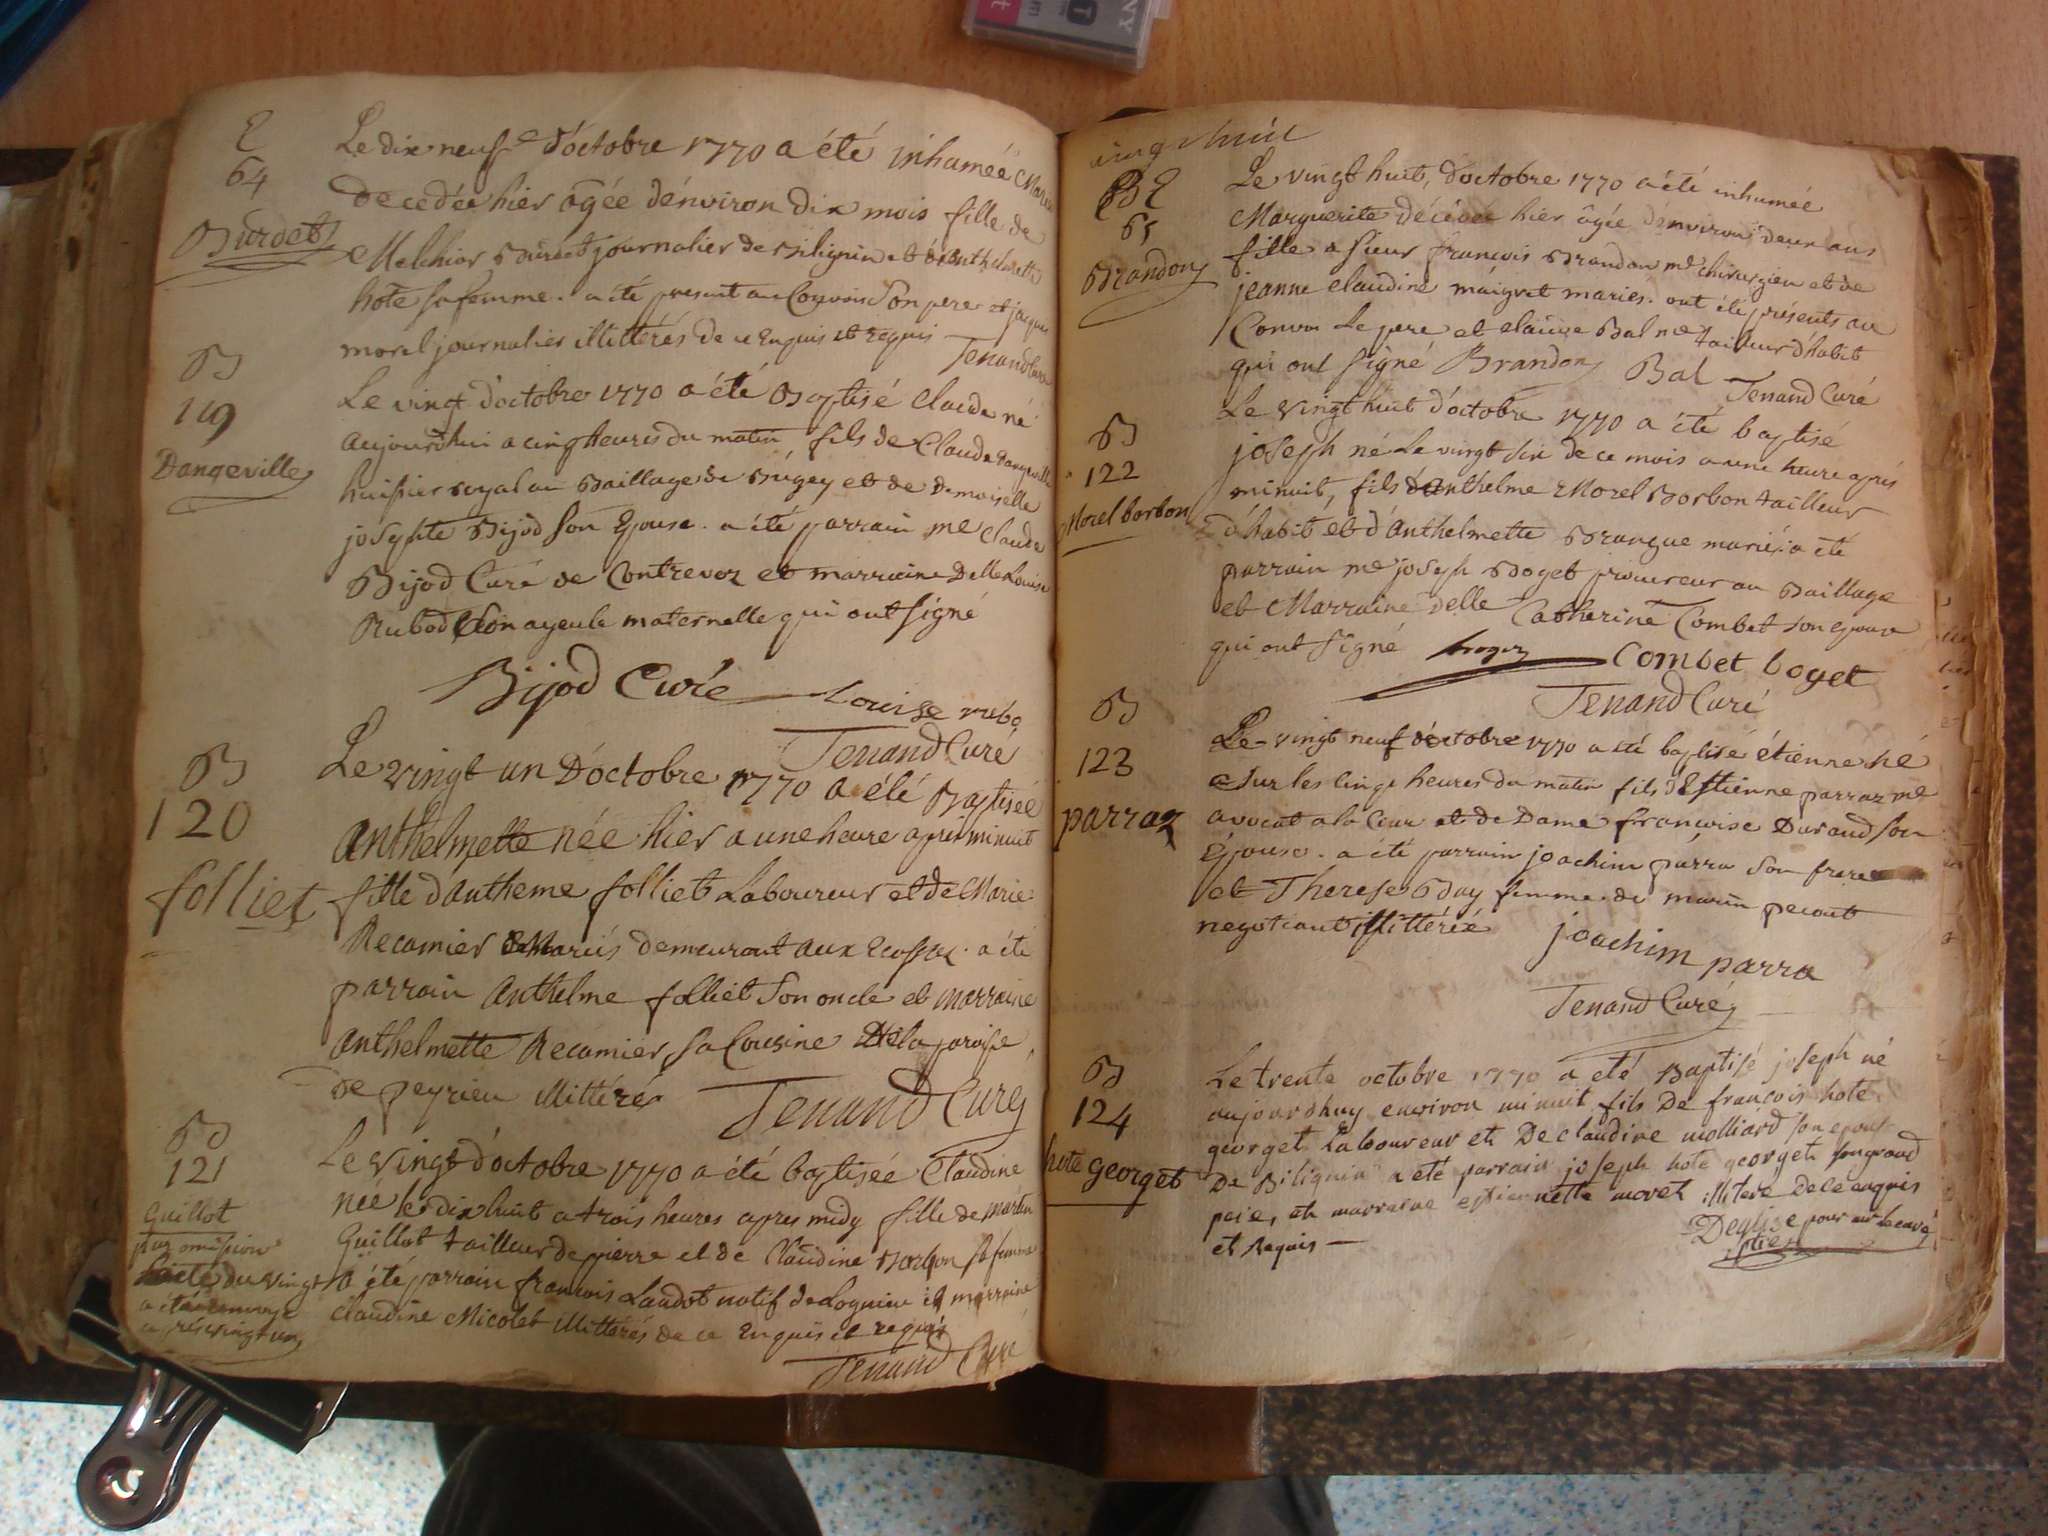 E
64
Burdet
Le dix neuf d'octobre 1770 a été inhumée Marie
decedée hier agée d'environ dix mois fille de
Melchior Burdet journalier de Bilignin et d'Anthelmette
hote sa femme. a été present au Convois son pere et jacques
morel journalier illittérés de ce Enquis et requis Tenand Curé
B
119
Dangeville
Le vingt d'octobre 1770 a été Baptisé Claude né
aujourdhui a cinq heures du matin fils de Claude Dangeville
huissier royal au Baillage de Bugey et de Demoiselle
joséphte Bijod son Epouse. a été parrain me Claude
Bijod Curé de Contrevoz et marraine Delle Louise
Rubod son ayeule maternelle qui ont signé
Bijod Curé Louise rubo
Tenand Curé
B
120
folliet
Le vingt un D'octobre 1770 a été Baptisée
Anthelmette née hier a une heure apres minuit
fille d'Antheme folliet Laboureur et de Marie
Recamier mariés demeurant aux Ecossaz. a été
parrain Anthelme folliet son oncle et marraine
Anthelmette Recamier sa Cousine de la paroisse
de peyrieu illittérés Tenand Curé
B
121
Guillot
par omission
l'acte du vingt
a été
après vingt un
Le vingt d'octobre 1770 a été baptisée Claudine
née le dix huit a trois heures apres midy fille de martin
Guillot tailleur de pierre et de Claudine Borbon sa femme
a été parrain francois Laudot natif de Lognieu et marraine
Claudine Micolet illittérés de ce Enquis et requis
Tenand Curé
vingt huit
E
65
Brandon
Le vingt huit, d'octobre 1770 a été inhumée
Marguerite décédée hier âgée d'environ deux ans
fille a sieur françois Brandon me chirurgien et de
jeanne Claudine maigret mariés. ont été présents au
Convoi Le pere et claude Bal me tailleur d'habit
qui ont signé Brandon Bal Tenand Curé
B
122
Morel borbon
Le vingt huit d'octobre 1770 a été baptisé
joseph né Le vingt six de ce mois a une heure après
minuit, fils d'Anthelme Morel Borbon tailleur
d'habit et d'Anthelmette Brangue mariés. a été
parrain me joseph Boget procureur au Baillage
et Marraine delle Catherine Combet son epouse
qui ont signé boget Combet boget
Tenand Curé
B
123
parraz
Le vingt neuf d'octobre 1770 a été baptisé étienne né
a Sur les cinq heures du matin fils d'Estienne parraz me
avocat a la Cour et de Dame françoise Durand son
Epouse. a été parrain joachim parra son frere
et Therese Bday femme de marin pecout
negotiant illittérée joachim parra
Tenand Curé
B
124
hote georget
Le trente octobre 1770 a eté Baptisé joseph né
aujourdhuy environ minuit fils De francois hote
georget Laboureur et De claudine molliard son epouse
De Bilignin a eté parrain joseph hote georget son grand
pere, et marraine estiennette moret illiteré De ce enquis
et Requis — Deglise pour mr le curé
ptre